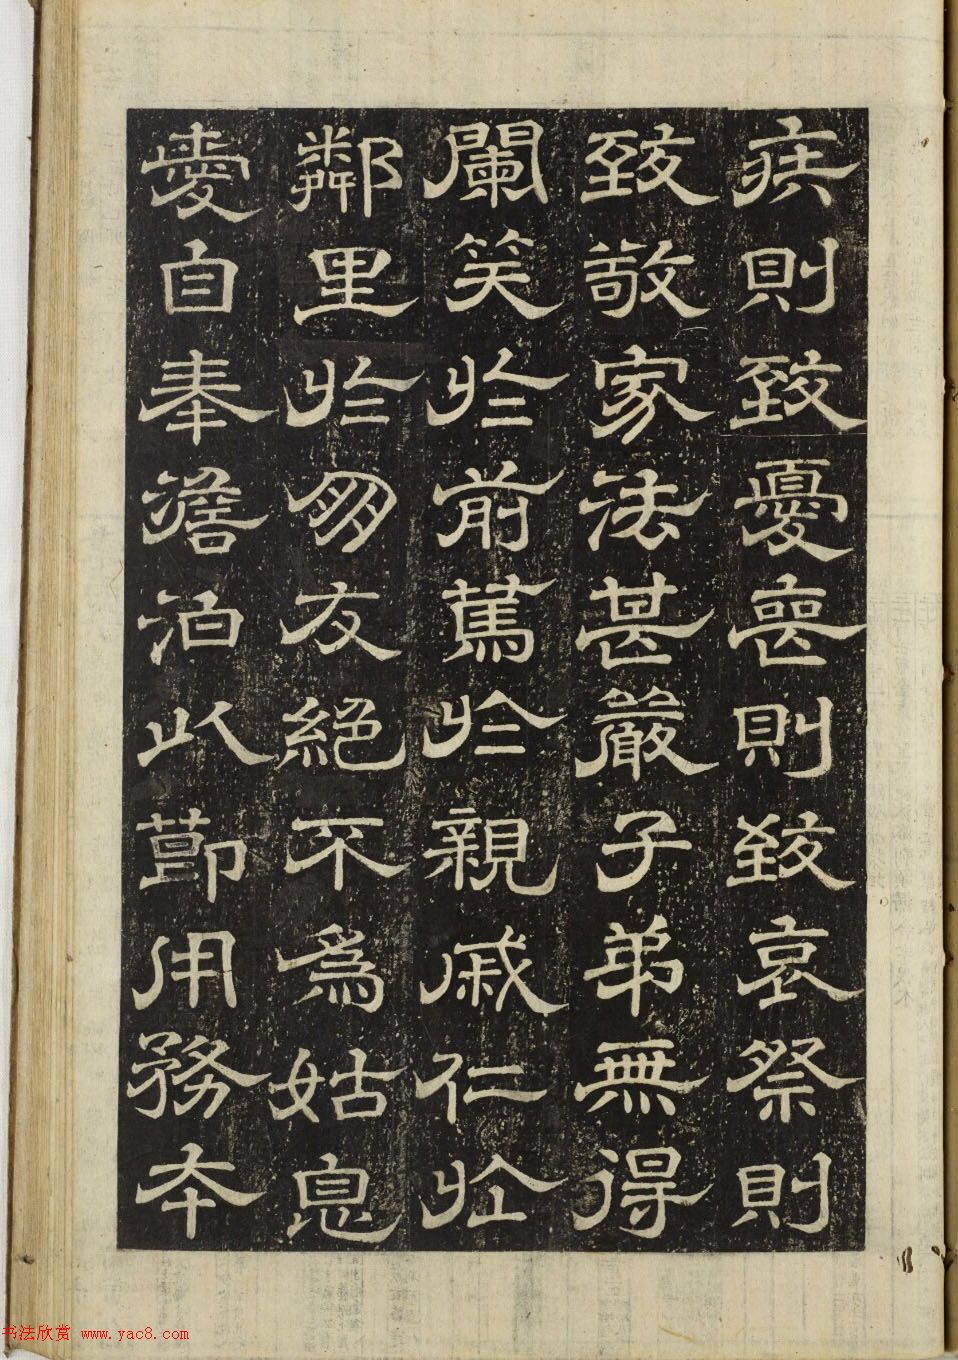 疾則致憂喪則致哀祭則
致敬家法甚嚴子弟無得
闌笑於前篤於親戚仁於
鄰里於朋友絕不為姑息
愛自奉澹泊以節用務本
书法欣赏 www.yac8.com